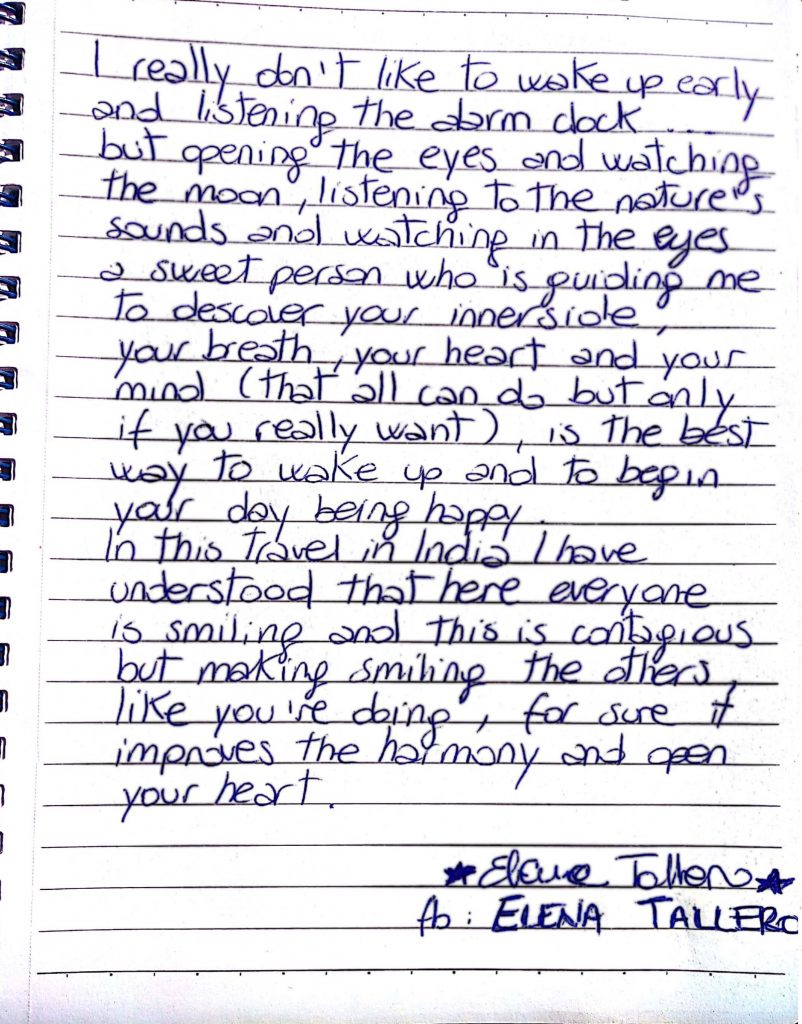 I really don't like to wake up early
and listening the alarm clock ....
but opening the eyes and watching
the moon, listening to the nature's
sounds and watching in the eyes
a sweet person who is guiding me
to descover your innerside,
your breath, your heart and your
mind (that all can do but only
if you really want), is the best
way to wake up and to begin
your day being happy.
In this travel in India I have
understood that here everyone
is smiling and this is contagious
but making smiling the others,
like you're doing, for sure it
improves the harmony and open
your heart.
★ Elena Tallero ★
fb: ELENA TALLERO